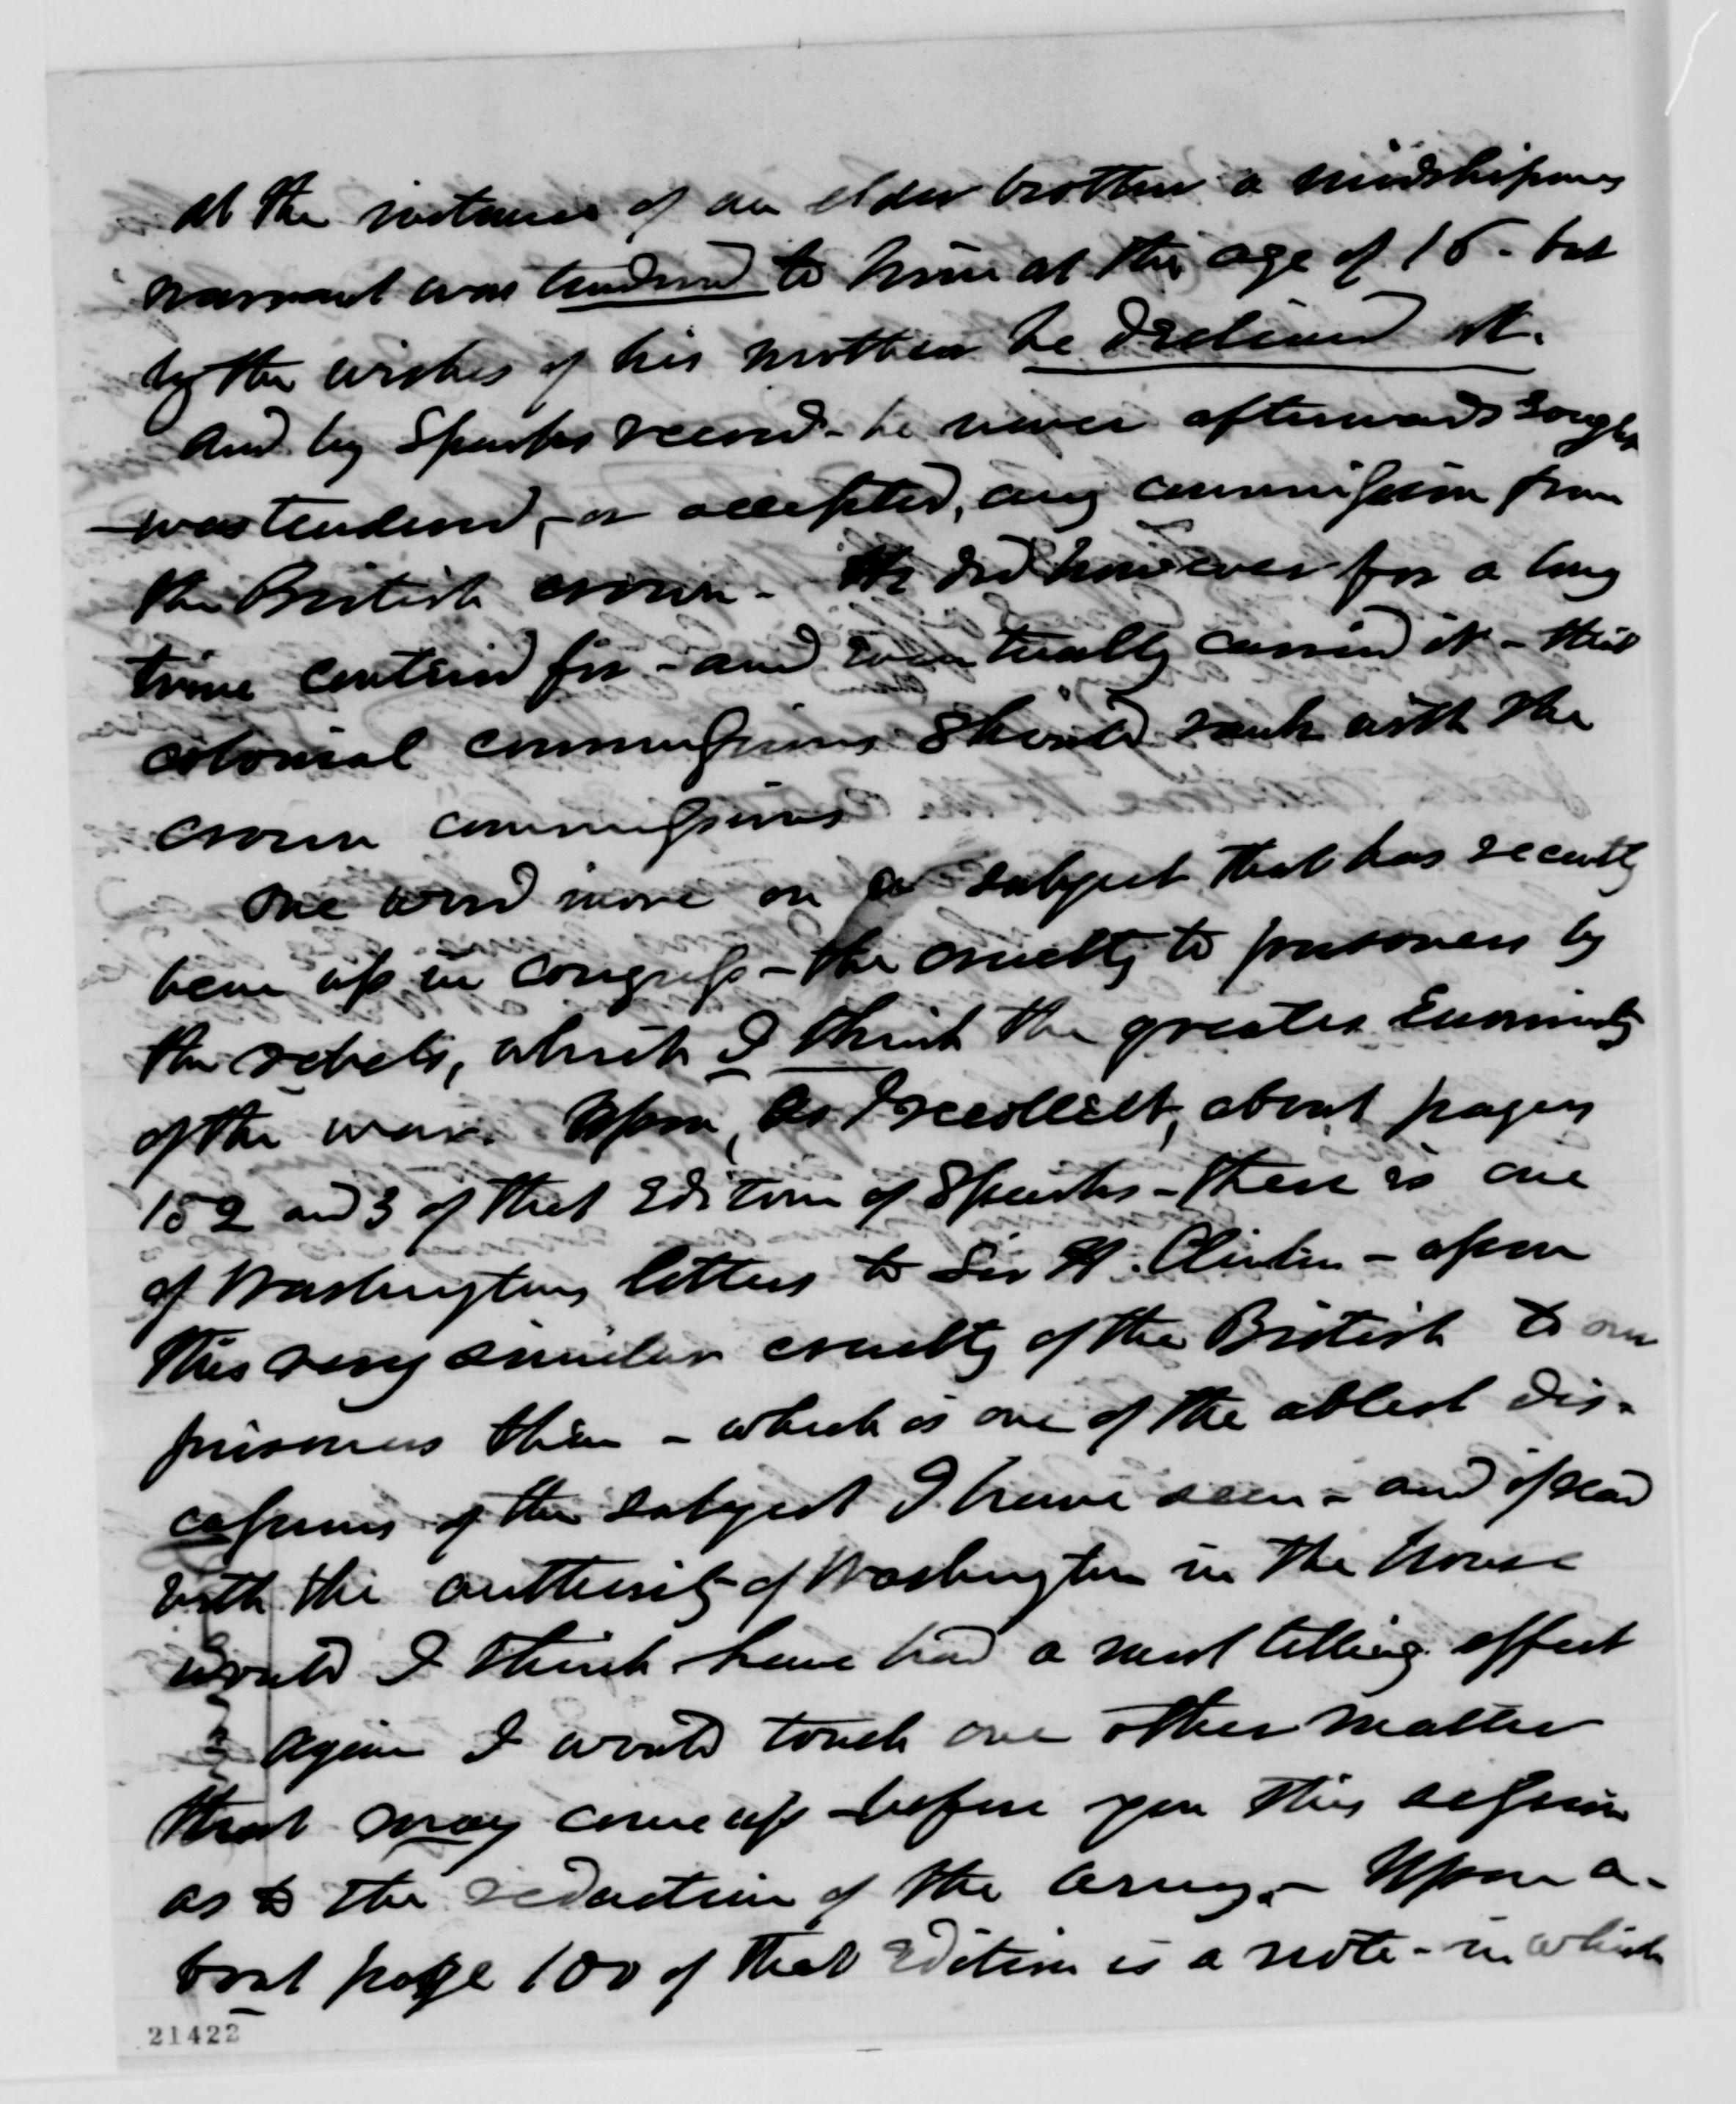 at the instance of an elder brother a midshipmans
warrant was tendered to him at the age of 15 - but
by the wishes of his mother he declined it.
And by Sparks record - he never afterwards sought
- was tendered, - or accepted, any commission from
the British crown - He did however for a long
time contend for - and eventually carried it - that
colonial commissions should rank with the
crown commissions
One word more on a subject that has recently
been up in congress - the cruelty to prisoners by
the rebels, which I think the greatest enormity
of the war. Upon, as I recollect, about pages
152 and 3 of that Edition of Sparks - there is one
of Washingtons letters to Sir H. Clinton - upon
this very similar cruelty of the British to our
prisoners then - which is one of the ablest dis-
cussions of the subject I have seen - and if read
with the authority of Washington in the House
would I think have had a most telling effect
Again I would touch one other matter
that may come up before you this session
as to the reduction of the army. - Upon a-
bout page 100 of that Edition is a note - in which
21422